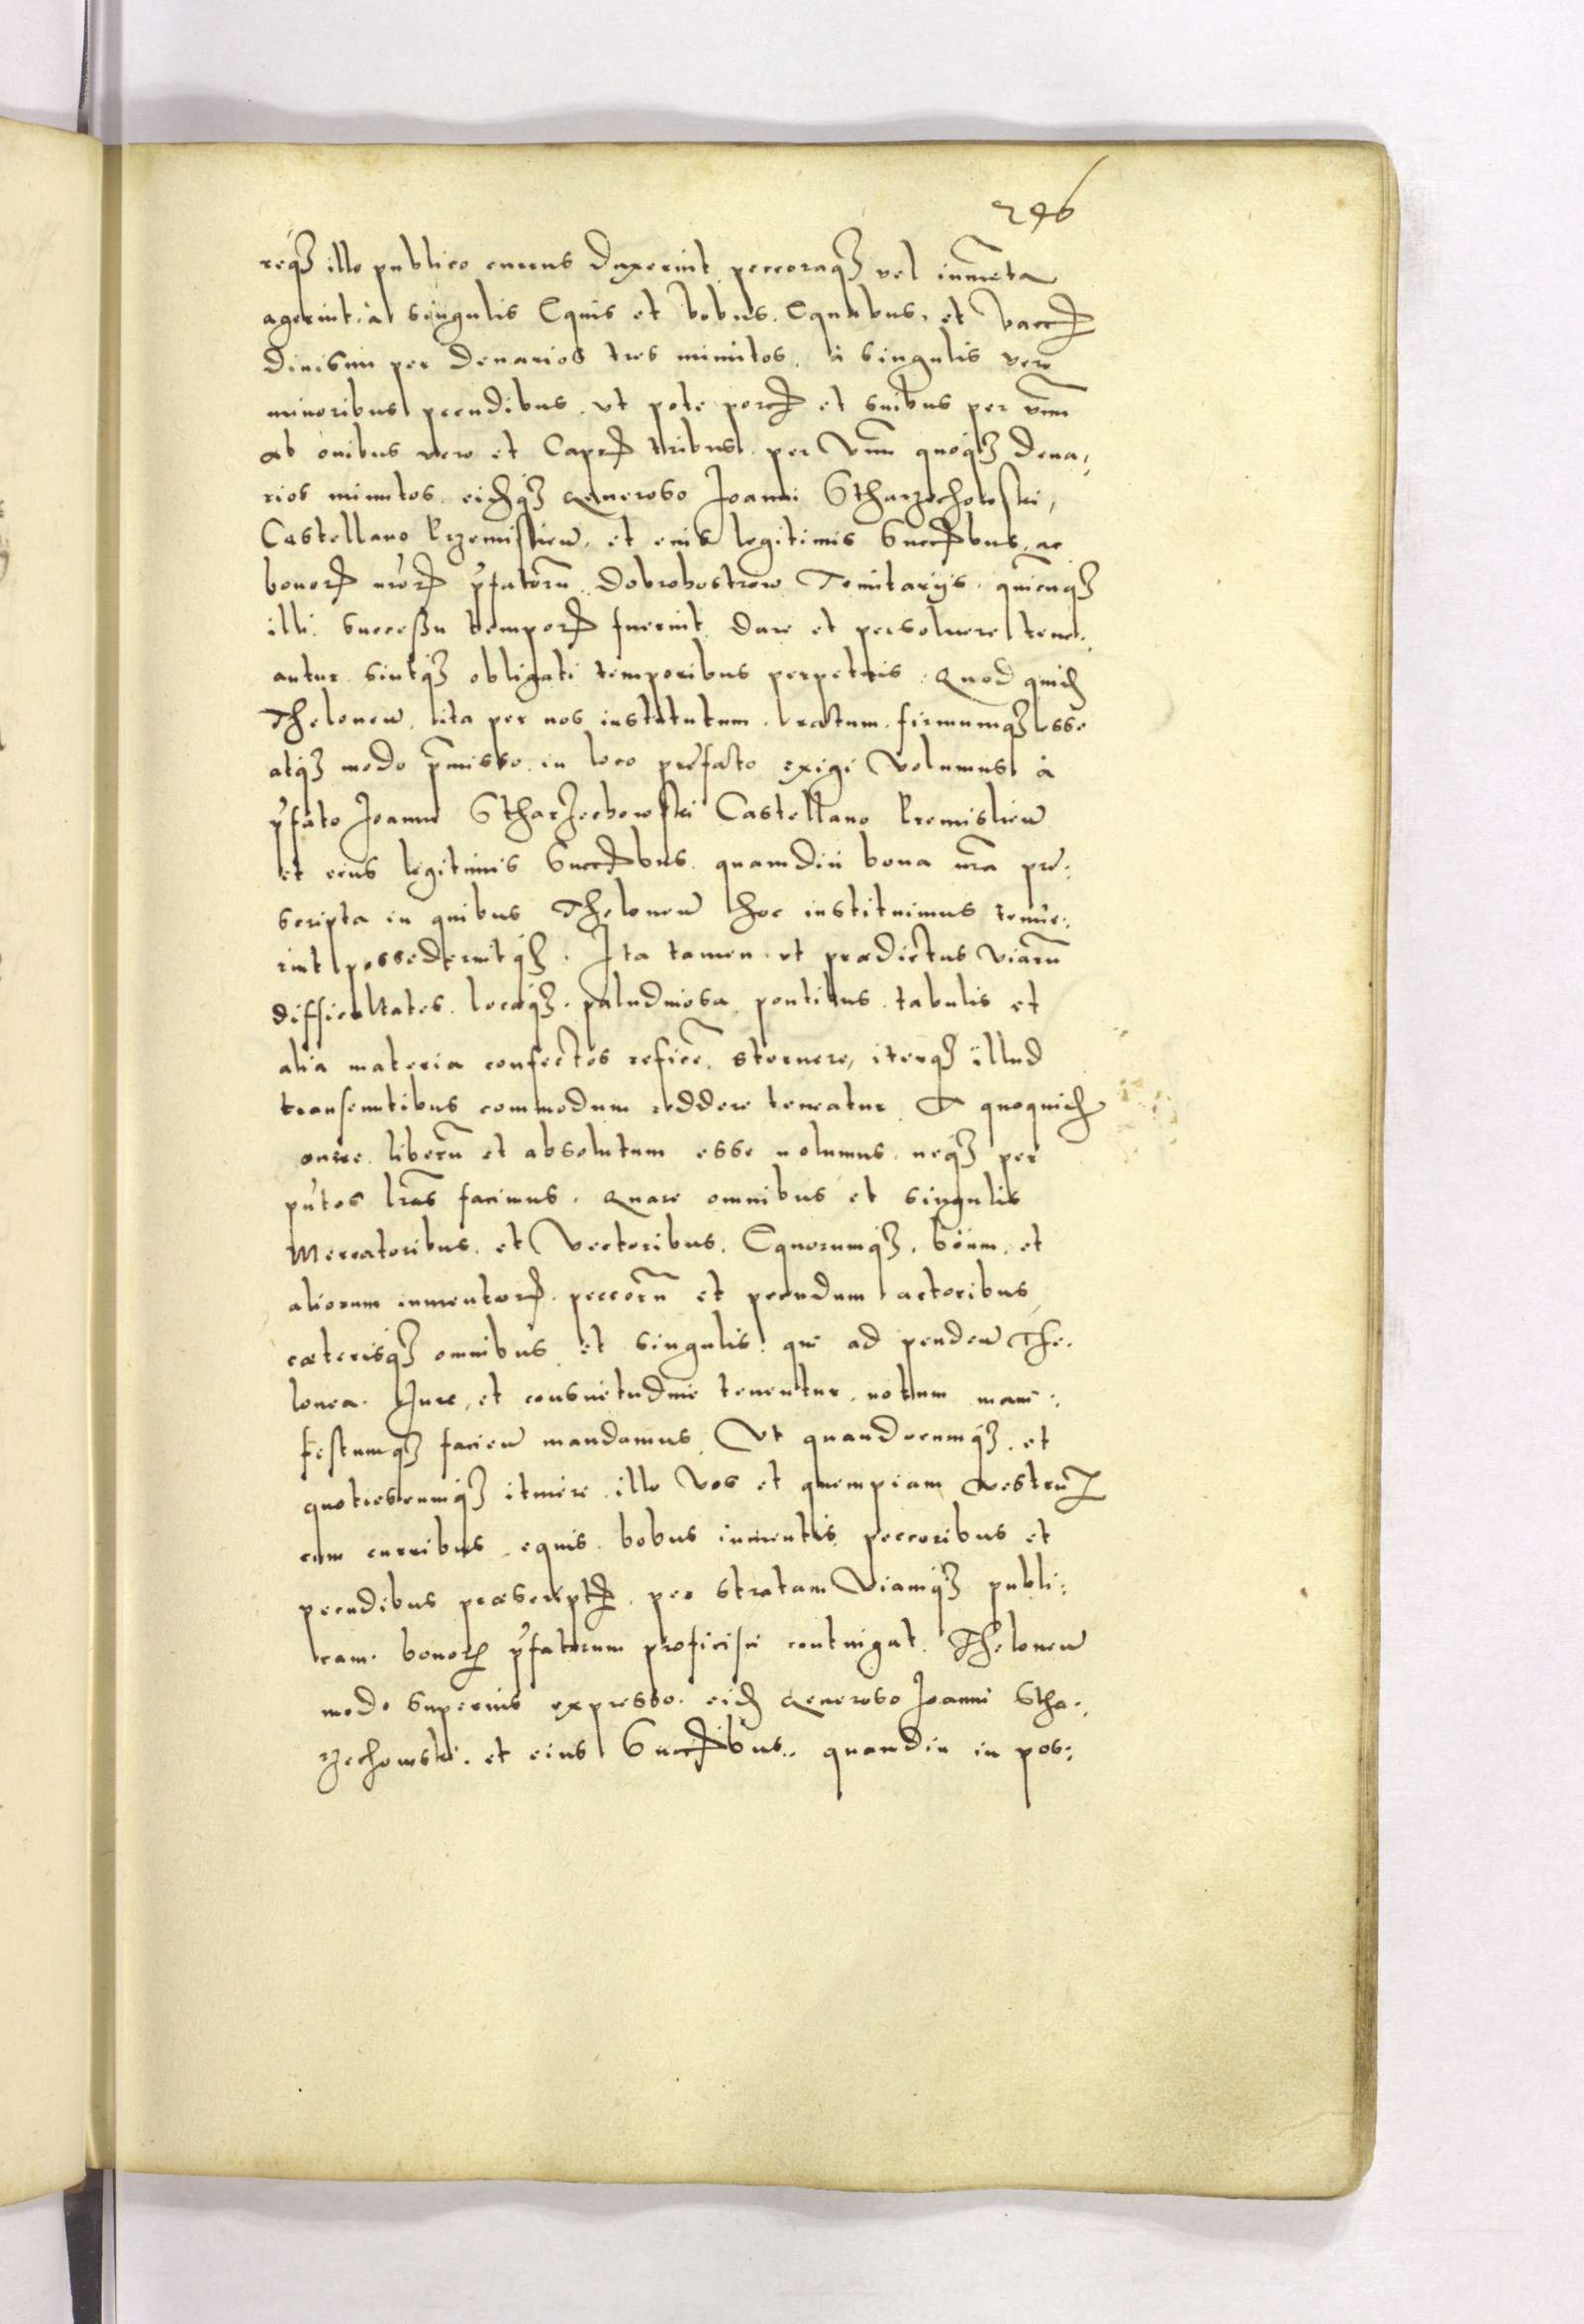 296
reqȝ illo publico currus duxerint peccoraqȝ vel ium̃eta
agerint à singulis Equis et bobus. Equabus, et Vaccꝭ
divisim per Denarios tres minutos. à singulis vero
minoribus pecudibus. vt pote porcꝭ et suibus per vnũ
ab ouibus vero et Caprꝭ tribus per Vnũ quoqȝ Dena,
rios minutos. eidqȝ Generoso Joanni Stharzechowski,
Castellano Krzemislien̄. et eius legitimis Succꝭbus. ac
bonorꝭ nr̃orꝭ p̃fatorũ Dobrohostow Tenutarijs. quicunqȝ
illi successu temporꝭ fuerint. Dare et persoluere tene,
antur. sintqȝ obligati temporibus perpetuis. Quod quid
Theloneũ ita per nos institutum. ratum. firmumqȝ esse
atqȝ modo p̃misso in loco præfato exigi Volumus à
p̃fato Joanne StharZechowski Castellano Kremislien̄
et eius legitimis Succꝭbus. quamdiu bona nr̃a præ:
scripta in quibus Theloneũ hoc instituimus tenue:
rint possederintqȝ. Ita tamen vt prædictus viarũ
difficultates. locaqȝ paludinosa. pontibus. tabulis et
alia materia confectos reficẽ. sternere, iterqȝ illud
transeuntibus commodum reddere teneatur. A quoquid
onere liberũ et absolutum esse nolumus. neqȝ per
p̃ntes lr̃as facimus. Quare omnibus et singulis
Mercatoribus. et Vectoribus. Equorumqȝ. boum. et
aliorum iumentorꝭ. peccorũ et pecudum actoribus
cæterisqȝ omnibus et singulis. qui ad penden̄ The.
lonea. Iure, et consuetudine tenentur. notum mani:
festumqȝ facien̄ mandamus. Vt quandocumqȝ. et
quotiescumqȝ itinere illo Vos et quempiam vestrũ
cum curribus. equis. bobus iumentis peccoribus et
pecudibus præscriptꝭ. per stratam Viamqȝ publi:
cam. bonorꝭ p̃fatorum proficisci contingat. Theloneũ
modo superius expresso. eid Generoso Joanni Stha.
rzechowski. et eius Succꝭbus.. quamdiu in pos: